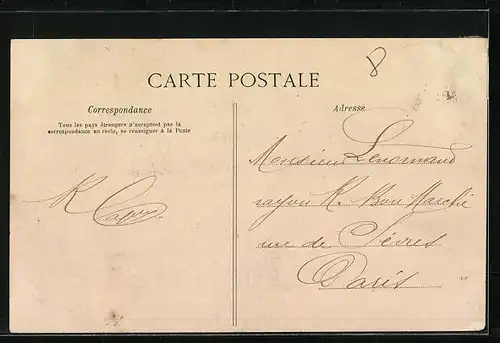 8
CARTE POSTALE
Correspondance
Tous les pays étrangers n'acceptent pas la
correspondance au recto, se renseigner à la Poste
Adresse
Monsieur Lenormand
rayon K. Bon Marché
rue de Sèvres
Paris
K